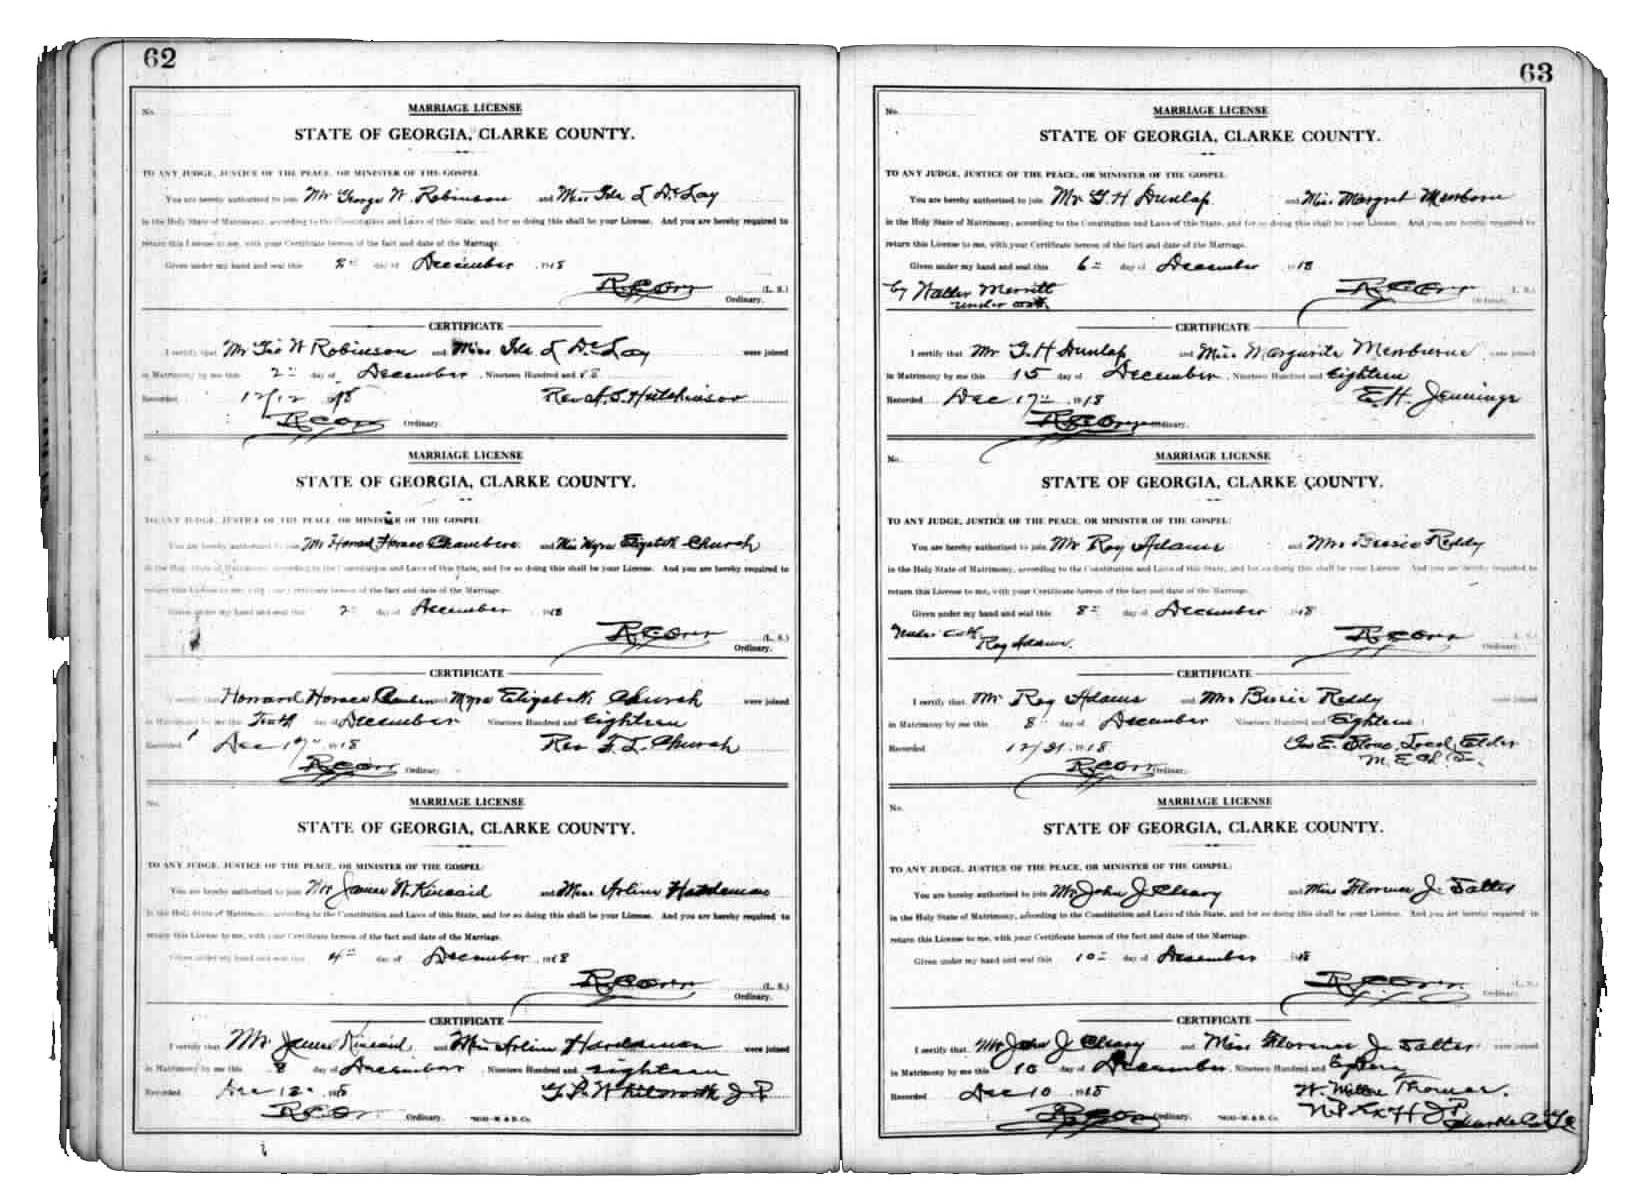 62
No.
MARRIAGE LICENSE
STATE OF GEORGIA, CLARKE COUNTY.
TO ANY JUDGE, JUSTICE OF THE PEACE, OR MINISTER OF THE GOSPEL
You are hereby authorized to join Mr George W. Robinson and Miss Ida L DeLay
in the Holy State of Matrimony, according to the Constitution and Laws of this State, and for so doing this shall be your License. And you are hereby required to
return this License to me, with your Certificate hereon of the fact and date of the Marriage.
Given under my hand and seal this day of December 1918
R C Orr (L. S.)
Ordinary.
CERTIFICATE
I certify that Mr Geo W Robinson and Miss Ida L DeLay were joined
in Matrimony by me this 2" day of December, Nineteen Hundred and 18
Recorded 12/12 1918 Rev A. S. Hutchinson
R C Orr Ordinary.
No.
MARRIAGE LICENSE
STATE OF GEORGIA, CLARKE COUNTY.
TO ANY JUDGE, JUSTICE OF THE PEACE, OR MINISTER OF THE GOSPEL:
You are hereby authorized to join Mr Howard Horace Chambers and Miss Myra Elizabeth Church
in the Holy State of Matrimony, according to the Constitution and Laws of this State, and for so doing this shall be your License. And you are hereby required to
return this License to me, with your Certificate hereon of the fact and date of the Marriage.
Given under my hand and seal this 2" day of December 1918
R C Orr (L. S.)
Ordinary.
CERTIFICATE
I certify that Howard Horace Chambers Myra Elizabeth Church were joined
in Matrimony by me this Tenth day of December Nineteen Hundred and Eighteen
Recorded Dec 17" 1918 Rev F. L. Church
R C Orr Ordinary.
No.
MARRIAGE LICENSE
STATE OF GEORGIA, CLARKE COUNTY.
TO ANY JUDGE, JUSTICE OF THE PEACE, OR MINISTER OF THE GOSPEL:
You are hereby authorized to join Mr James W. Kincaid and Miss Arline Hardeman
in the Holy State of Matrimony, according to the Constitution and Laws of this State, and for so doing this shall be your License. And you are hereby required to
return this License to me, with your Certificate hereon of the fact and date of the Marriage.
Given under my hand and seal this 4" day of December 1918
R C Orr (L. S.)
Ordinary.
CERTIFICATE
I certify that Mr James Kincaid and Miss Arline Hardeman were joined
in Matrimony by me this 8 day of December, Nineteen Hundred and eighteen
Recorded Dec 12" 1918 Whitworth J P
R C Orr Ordinary.
63
No.
MARRIAGE LICENSE
STATE OF GEORGIA, CLARKE COUNTY.
TO ANY JUDGE, JUSTICE OF THE PEACE, OR MINISTER OF THE GOSPEL:
You are hereby authorized to join Mr G. H Dunlap and Miss Margret Mewborn
in the Holy State of Matrimony, according to the Constitution and Laws of this State, and for so doing this shall be your License. And you are hereby required to
return this License to me, with your Certificate hereon of the fact and date of the Marriage.
Given under my hand and seal this 6" day of December 1918
by Walter Merritt R C Orr (L. S.)
under oath Ordinary.
CERTIFICATE
I certify that Mr G. H Dunlap and Miss Margurite Mewburne were joined
in Matrimony by me this 15 day of December, Nineteen Hundred and Eighteen
Recorded Dec 17" 1918 E. H. Jennings
R C Orr Ordinary.
No.
MARRIAGE LICENSE
STATE OF GEORGIA, CLARKE COUNTY.
TO ANY JUDGE, JUSTICE OF THE PEACE, OR MINISTER OF THE GOSPEL:
You are hereby authorized to join Mr Roy Adams and Mrs Bursie Reddy
in the Holy State of Matrimony, according to the Constitution and Laws of this State, and for so doing this shall be your License. And you are hereby required to
return this License to me, with your Certificate hereon of the fact and date of the Marriage.
Given under my hand and seal this 8" day of December 1918
Under oath R C Orr (L. S.)
Roy Adams. Ordinary.
CERTIFICATE
I certify that Mr Roy Adams and Mrs Bursie Reddy were joined
in Matrimony by me this 8 day of December Nineteen Hundred and Eighteen
Recorded 12/21 1918 E. Stone, Local Elder
R C Orr Ordinary. M. E. Ch. S.
No.
MARRIAGE LICENSE
STATE OF GEORGIA, CLARKE COUNTY.
TO ANY JUDGE, JUSTICE OF THE PEACE, OR MINISTER OF THE GOSPEL:
You are hereby authorized to join Mr John J Cleary and Miss Florence J. Salter
in the Holy State of Matrimony, according to the Constitution and Laws of this State, and for so doing this shall be your License. And you are hereby required to
return this License to me, with your Certificate hereon of the fact and date of the Marriage.
Given under my hand and seal this 10" day of December 1918
R C Orr (L. S.)
Ordinary.
CERTIFICATE
I certify that Mr John J Cleary and Miss Florence J Salter were joined
in Matrimony by me this 10 day of December, Nineteen Hundred and
Recorded Dec 10 1918 W. Thomas.
R C Orr Ordinary. J P
Clarke Co Ga